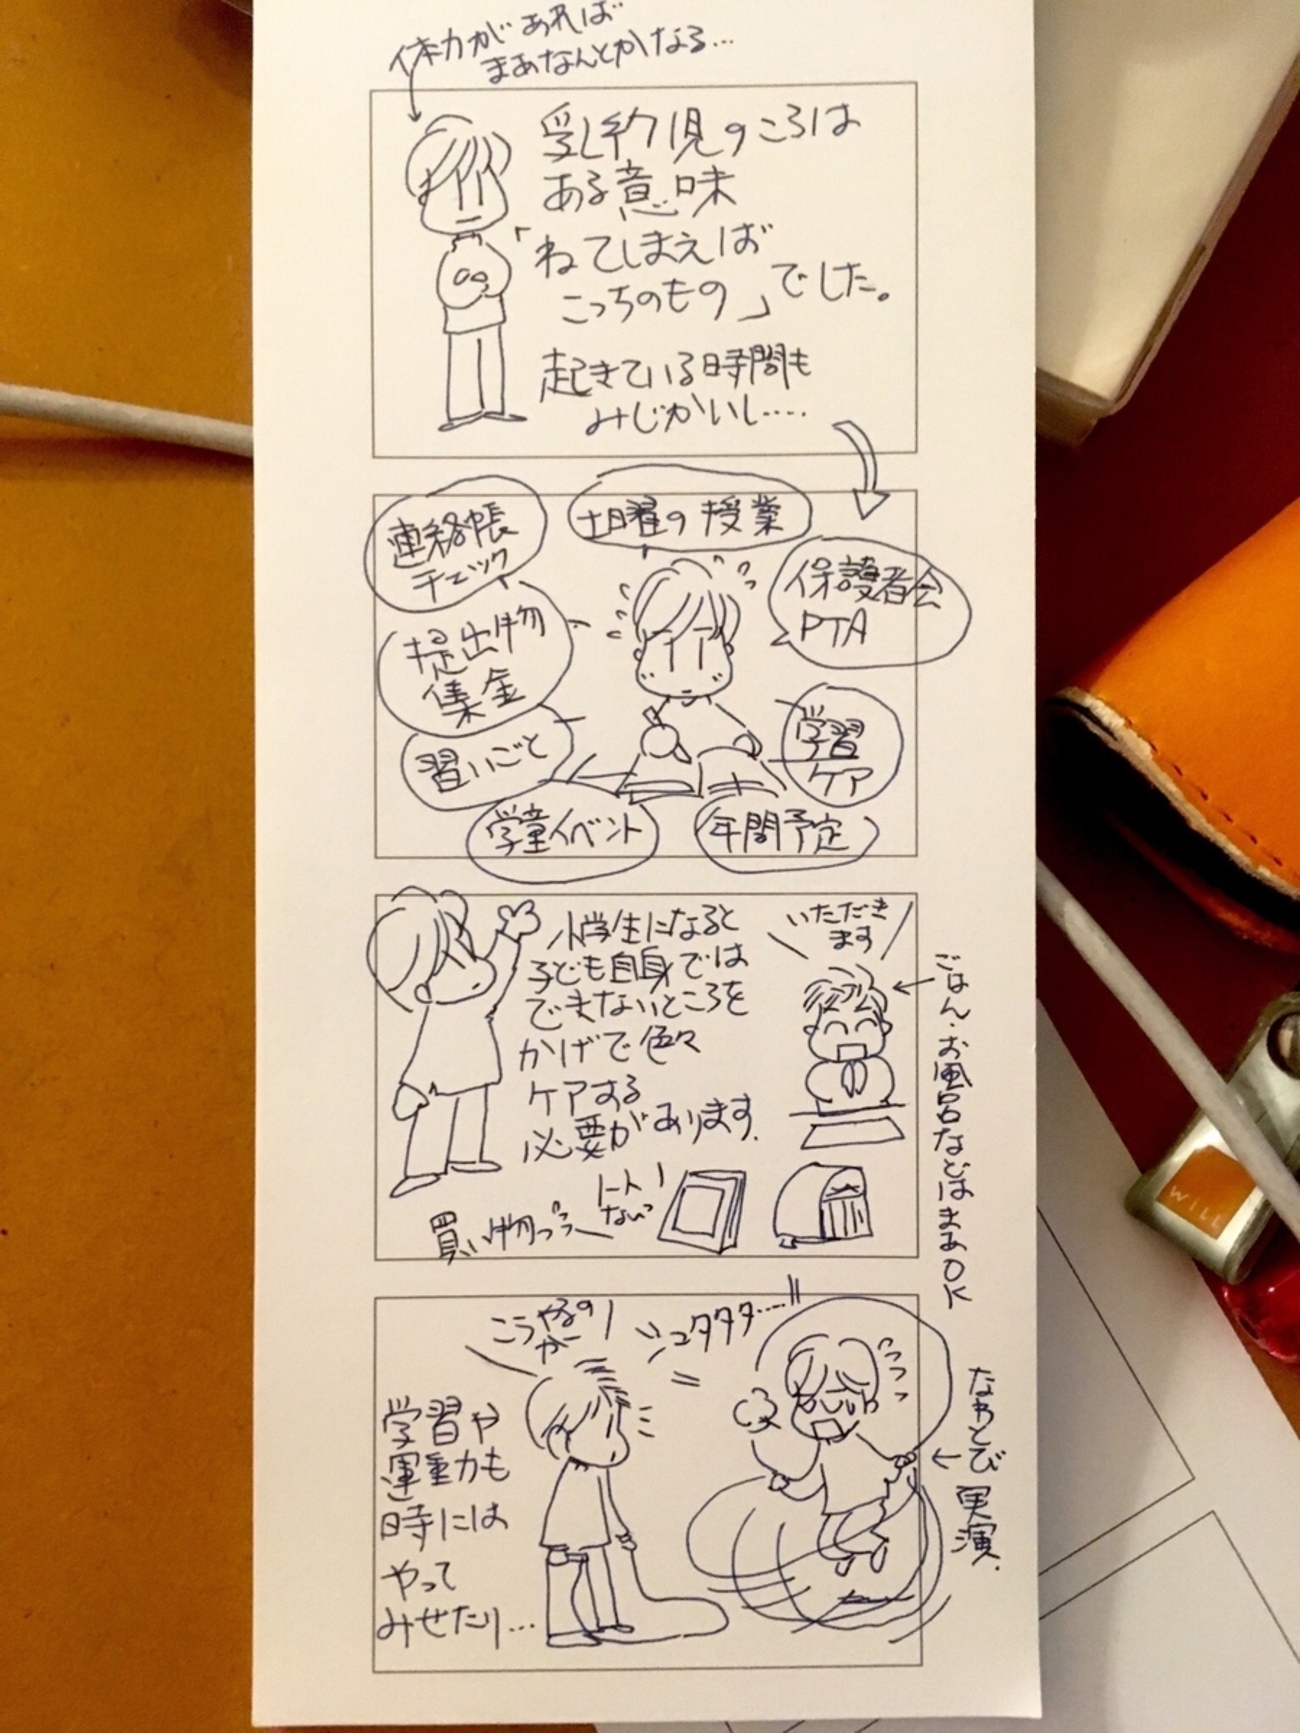 体力があれば
まあなんとかなる…
乳幼児のころは
ある意味
「ねてしまえば
こっちのもの」でした。
起きている時間も
みじかいし……
連絡帳
チェック
土曜の授業
保護者会
PTA
提出物
集金
習いごと
学習
ケア
学童イベント
年間予定
小学生になると
子ども自身では
できないところを
かげで色々
ケアする
必要があります.
いただき
ます
ごはん・お風呂などはまあOK
ノートノ
ない
買い物っ
こうやるの
かー
シュタタタ……
学習や
運動も
時には
やって
みせたり…
なわとび
実演.
WILL